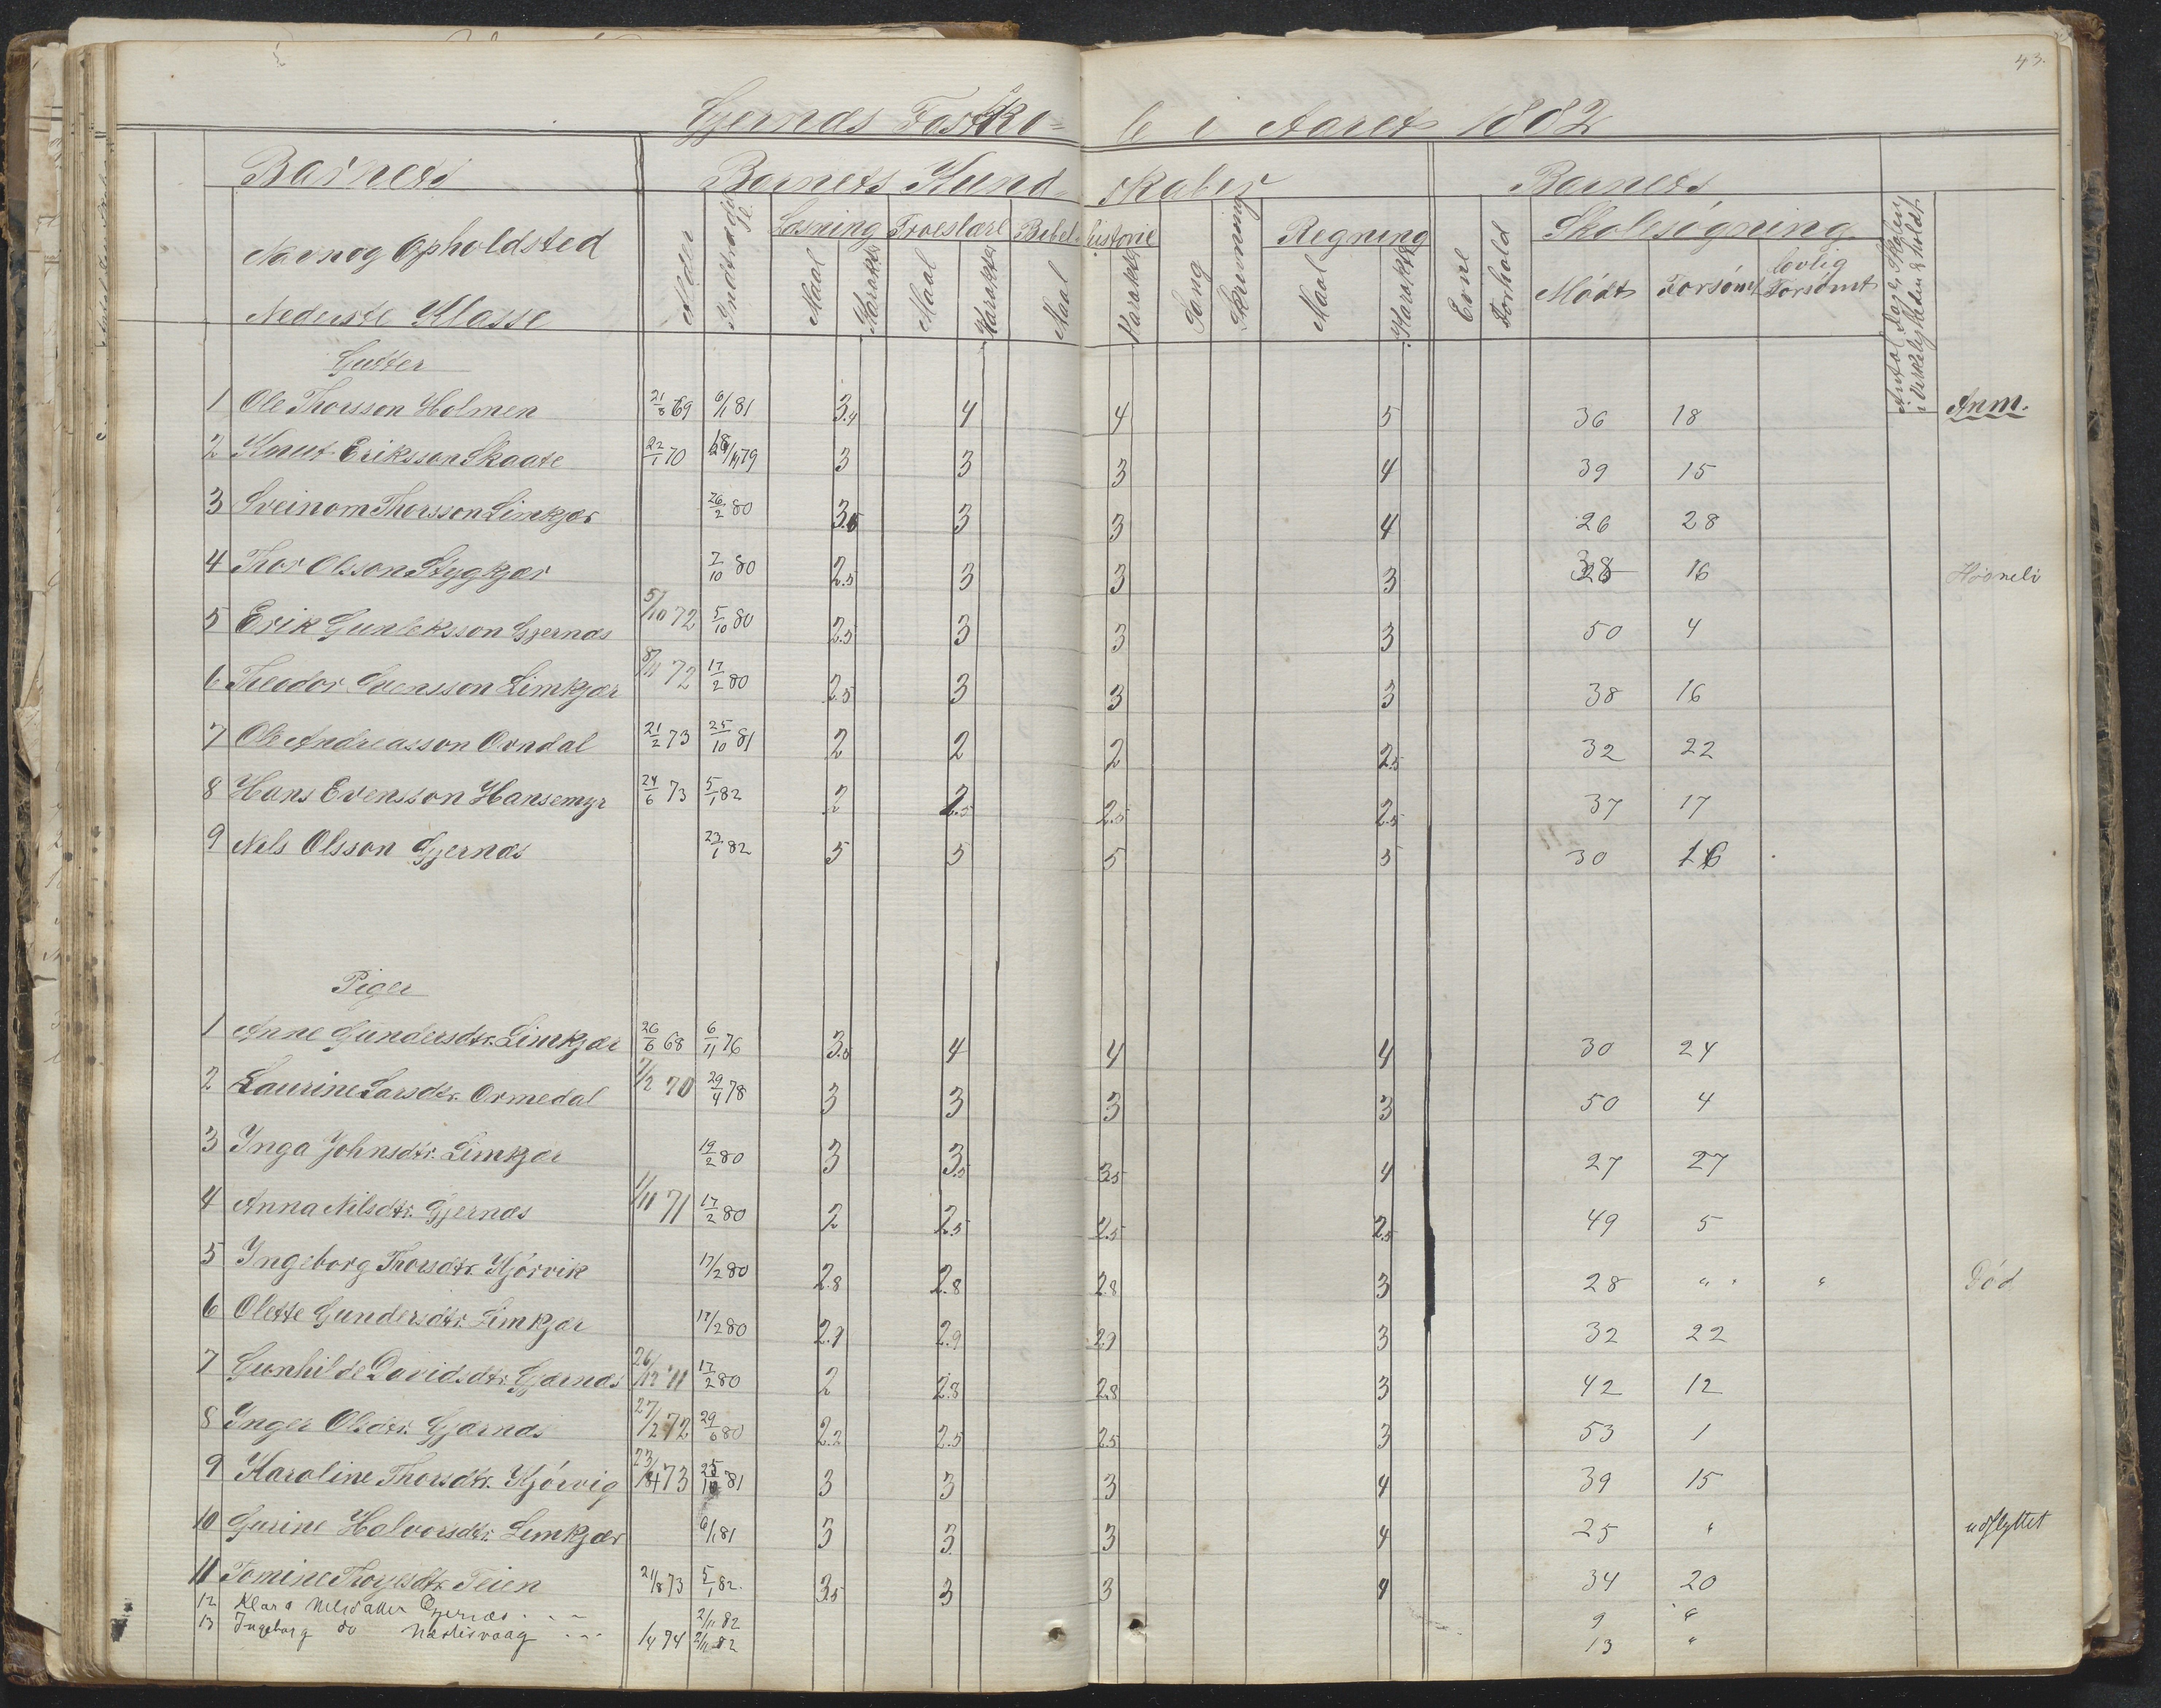 43.
Gjernæs Fastsko- le i Aaret 1882
Barnets Barnets Kund- skaber Barnets
Navn og Opholdsted Alder Læsning Troeslære Bibel- historie Sang Skrivning Regning Evne Forhold Skolesøgning Antal Dage Skolen i Virkeligheden er holdt.
Nederste Klasse Maal Karakter Maal Karakter Maal Karakter Maal Karakter Mødt Forsømt lovlig Forsømt
Gutter Anm.
1 Ole Thorsson Holmen 21/8 69 6/1 81 3.4 4 4 5 36 18
2 Knut Eriksson Skaate 22/1 70 79 3 3 3 4 39 15
3 Sveinom Thorsson Limkjær 26/2 80 3.5 3 3 4 26 28
4 Thor Olsson Stygkjær 7/10 80 2.5 3 3 3 38 16
5 Erik Gunleksson Gjernæs 5/10 72 5/10 80 2.5 3 3 3 50 4
6 Theodor Svensson Limkjær 8/11 72 17/2 80 2.5 3 3 3 38 16
7 Ole Andreasson Ovndal 21/2 73 25/10 81 2 2 2 2.5 32 22
8 Hans Evensson Hansemyr 24/6 73 5/1 82 2 2.5 2.5 2.5 37 17
9 Nils Olsson Gjernæs 23/1 82 5 5 5 5 30 16
Piger
1 Anne Gundersdtr. Limkjær 26/6 68 6/11 76 3.5 4 4 4 30 24
2 Laurine Larsdtr. Ormedal 7/2 70 29/4 78 3 3 3 3 50 4
3 Inga Johnsdtr. Limkjær 19/2 80 3 3.5 3.5 4 27 27
4 Anna Nilsdtr. Gjernæs 1/11 71 17/2 80 2 2.5 2.5 2.5 49 5
5 Ingeborg Thorsdtr. Kjørvik 17/2 80 2.8 2.8 2.8 3 28 " " " Død
6 Olette Gundersdtr. Limkjær 17/2 80 2.9 2.9 2.9 3 32 22
7 Gunhilde Davidsdtr. Gjærnæs 26/12 71 17/2 80 2 2.8 2.8 3 42 12
8 Inger Olsdtr. Gjærnæs 27/2 72 29/6 80 2.2 2.5 2.5 3 53 1
9 Karoline Thorsdtr. Kjørvig 73 25/10 81 3 3 3 4 39 15
10 Gurine Halvorsdtr. Limkjær 6/1 81 3 3 3 4 25 " udflyttet
11 Tomine Thoresdtr. Teien 21/8 73 5/1 82. 3.5 3 3 4 34 20
12 Klara Nilsdatter Gjernæs 2/11 82 9 "
13 Ingeborg do Næstisvaag 1/4 74 2/11 82 13 "